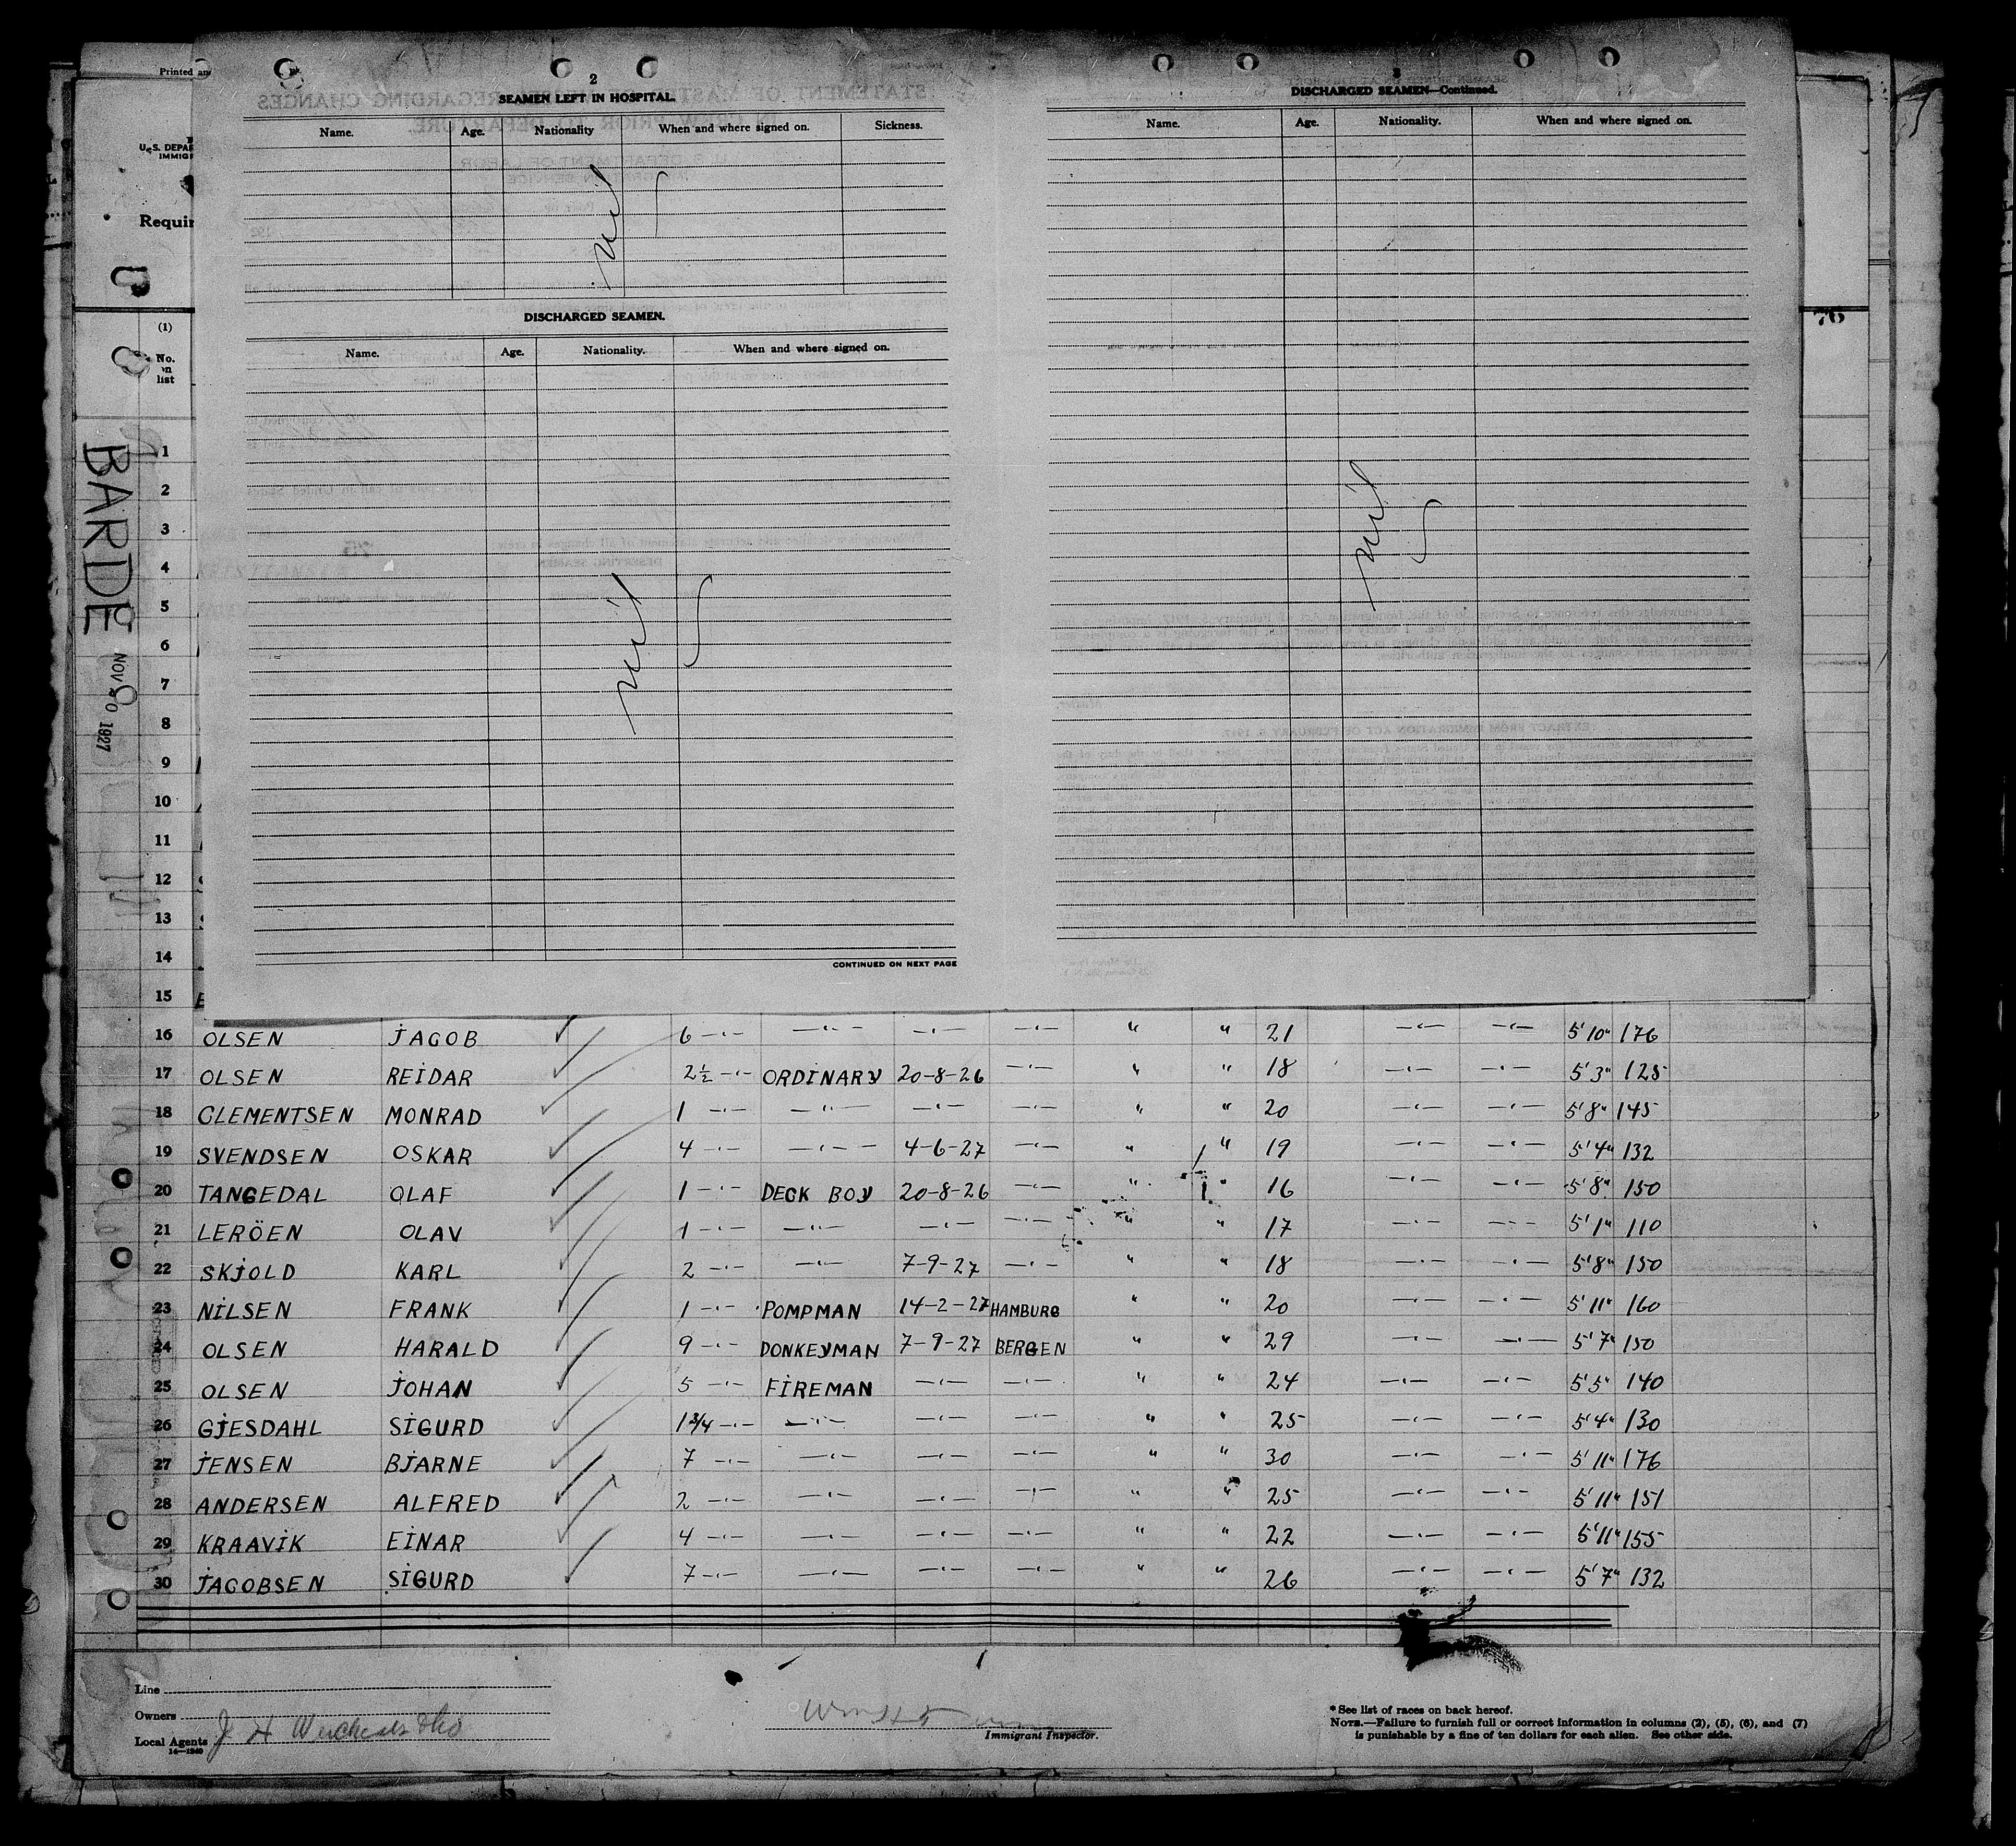 Printed an
U.S. DEPAR
IMMIGR
Requir
(1)
No.
on
list
BARDE NOV 20 1927
2
SEAMEN LEFT IN HOSPITAL.
Name. Age. Nationality When and where signed on. Sickness.
nil
DISCHARGED SEAMEN.
Name. Age. Nationality. When and where signed on.
nil
CONTINUED ON NEXT PAGE
3
DISCHARGED SEAMEN—Continued.
Name. Age. Nationality. When and where signed on.
nil
76
1
2
3
4
5
6
7
8
9
10
11
12
13
14
15
16 OLSEN JACOB 6 -"- -"- -"- -"- " " 21 -"- -"- 5'10" 176
17 OLSEN REIDAR 2½ -"- ORDINARY 20-8-26 -"- " " 18 -"- -"- 5'3" 125
18 CLEMENTSEN MONRAD 1 -"- -"- -"- -"- " " 20 -"- -"- 5'8" 145
19 SVENDSEN OSKAR 4 -"- -"- 4-6-27 -"- " " 19 -"- -"- 5'4" 132
20 TANGEDAL OLAF 1 -"- DECK BOY 20-8-26 -"- " " 16 -"- -"- 5'8" 150
21 LERÖEN OLAV 1 -"- -"- -"- -"- " " 17 -"- -"- 5'1" 110
22 SKJOLD KARL 2 -"- -"- 7-9-27 -"- " " 18 -"- -"- 5'8" 150
23 NILSEN FRANK 1 -"- POMPMAN 14-2-27 HAMBURG " " 20 -"- -"- 5'11" 160
24 OLSEN HARALD 9 -"- DONKEYMAN 7-9-27 BERGEN " " 29 -"- -"- 5'7" 150
25 OLSEN JOHAN 5 -"- FIREMAN -"- -"- " " 24 -"- -"- 5'5" 140
26 GJESDAHL SIGURD 1¾ -"- -"- -"- -"- " " 25 -"- -"- 5'4" 130
27 JENSEN BJARNE 7 -"- -"- -"- -"- " " 30 -"- -"- 5'11" 176
28 ANDERSEN ALFRED 2 -"- -"- -"- -"- " " 25 -"- -"- 5'11" 151
29 KRAAVIK EINAR 4 -"- -"- -"- -"- " " 22 -"- -"- 5'11" 155
30 JACOBSEN SIGURD 7 -"- -"- -"- -"- " " 26 -"- -"- 5'7" 132
Line
Owners
Local Agents J H
14—1240
Immigrant Inspector.
* See list of races on back hereof.
NOTE.—Failure to furnish full or correct information in columns (2), (5), (6), and (7)
is punishable by a fine of ten dollars for each alien. See other side.